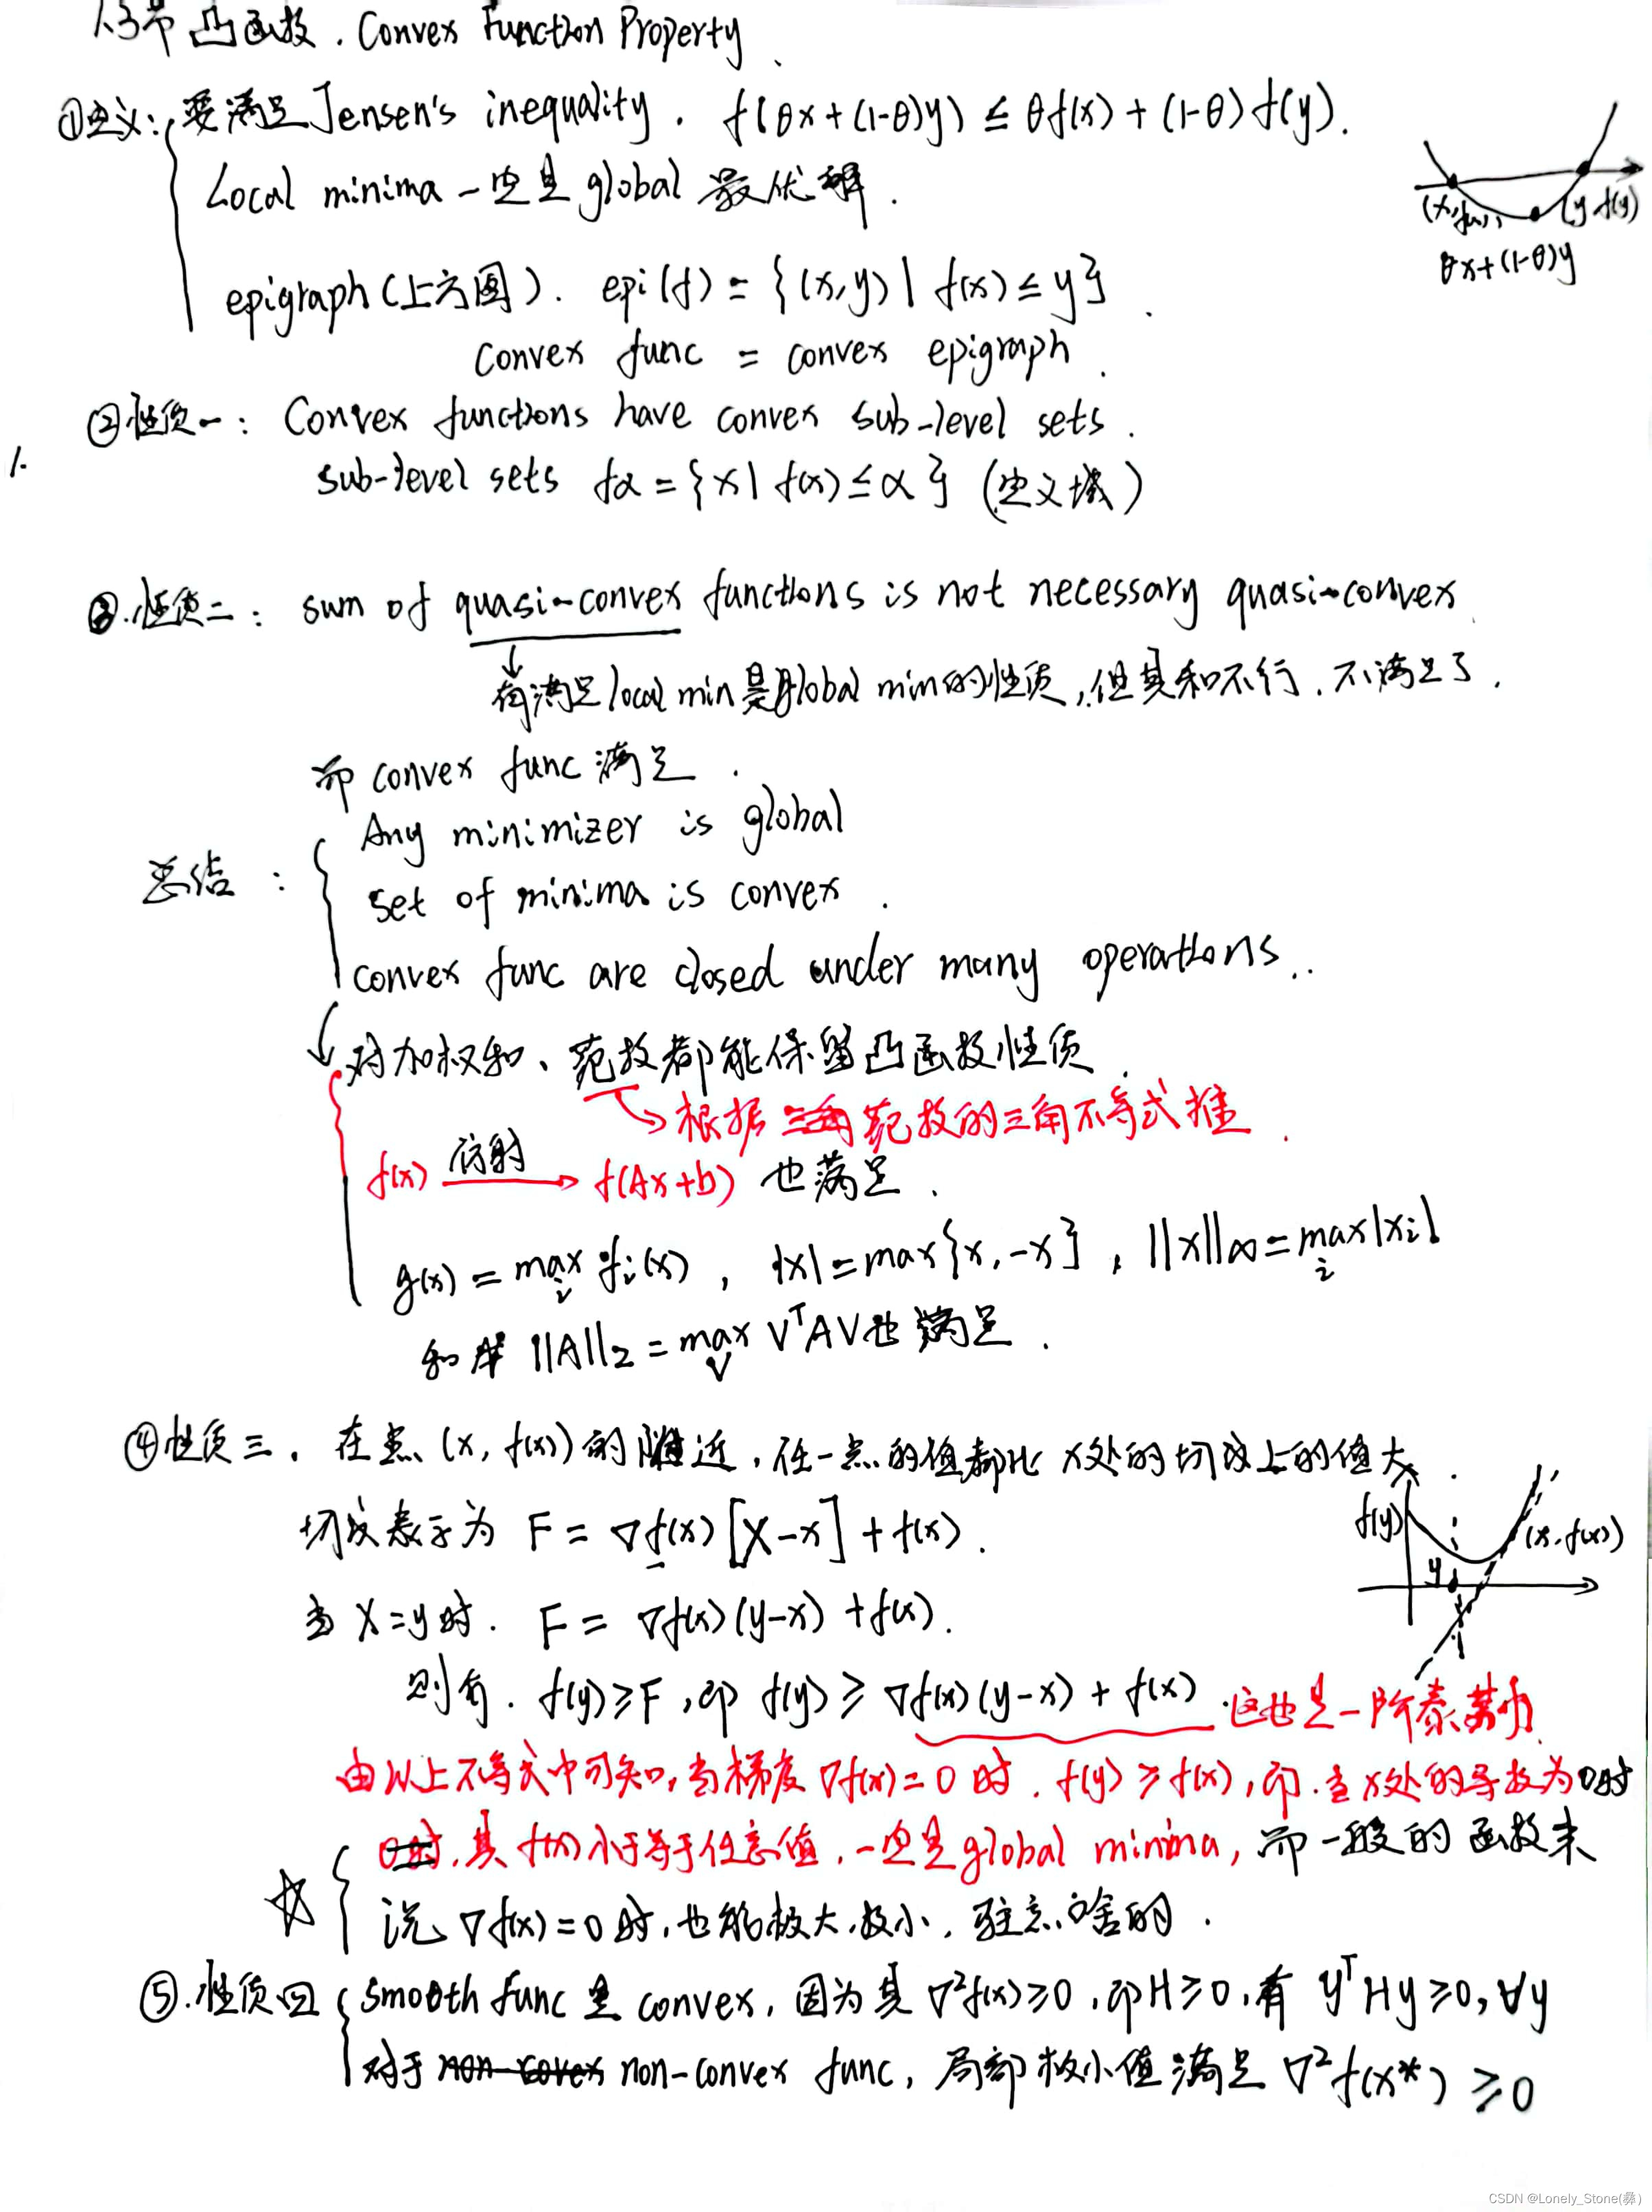 凸函数. Convex Function Property
①定义: 要满足Jensen's inequality. f(θx+(1-θ)y) ≤ θf(x)+(1-θ)f(y).
Local minima 一定是global 最优解.
(x, f(x)) (y f(y))
θx+(1-θ)y
epigraph(上方图). epi(f) = {(x,y) | f(x) ≤ y}
Convex func = convex epigraph.
②性质一: Convex functions have convex sub-level sets.
1.
sub-level sets fα = {x| f(x) ≤ α} (定义域)
③.性质二: sum of quasi-convex functions is not necessary quasi-convex.
↓
满足local min是global min的性质,但其和不行.不满足了.
而 convex func 满足.
总结:
Any minimizer is global
set of minima is convex.
convex func are closed under many operations..
对加权和、范数都能保留凸函数性质.
→根据 范数的三角不等式推.
f(x) 仿射→ f(Ax+b) 也满足.
g(x) = max_i f_i(x), |x| = max{x,-x}, ||x||∞ = max_i |x_i|
和 ||A||₂ = max_V VᵀAV也满足.
④性质三. 在点(x, f(x))的附近,任一点的值都比 x处的切线上的值大.
切线表示为 F = ∇f(x)[X-x]+f(x).
f(y) y (x,f(x))
当X=y时. F = ∇f(x)(y-x)+f(x).
则有. f(y)≥F,即 f(y) ≥ ∇f(x)(y-x)+f(x).这也是一阶泰勒
由以上不等式中可知,当梯度 ∇f(x)=0 时. f(y)≥f(x),即.当x处的导数为0时
0时,其 f(x)小于等于任意值,一定是global minima,而一般的函数来
☆ 说 ∇f(x)=0时,也能极大,极小,驻点啥的.
⑤.性质四 smooth func 是 convex,因为其 ∇²f(x)≥0,即H≥0,有 yᵀHy≥0,∀y
对于 non-covex non-convex func,局部极小值满足 ∇²f(x*) ≥0
CSDN @Lonely_Stone(彝)